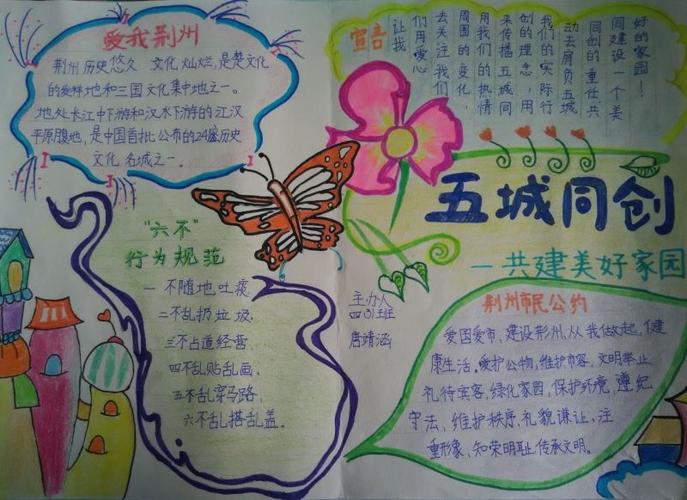 爱我荆州
荆州历史悠久 文化灿烂,是楚文化
的发祥地和三国文化集中地之一。
地处长江中下游和汉水下游的江汉
平原腹地,是中国首批公布的24座历史
文化名城之一。
"六不"
行为规范
一不随地吐痰
二不乱扔垃圾,
三不占道经营,
四不乱贴乱画,
五不乱穿马路,
六不乱搭乱盖。
宣言
让我
们用爱心
去关注我们
周围的变化,
用我们的热情
来传播五城同
创的理念,用
我们的实际行
动去肩负五城
同创的重任共
同建设一个美
好的家园!
五城同创
一共建美好家园
主办人
四(3)班
唐靖涵
荆州市民公约
爱国爱市,建设荆州,从我做起,健
康生活,爱护公物,维护市容,文明举止,
礼待宾客,绿化家园,保护环境,遵纪
守法,维护秩序,礼貌谦让,注
重形象,知荣明耻,传承文明。